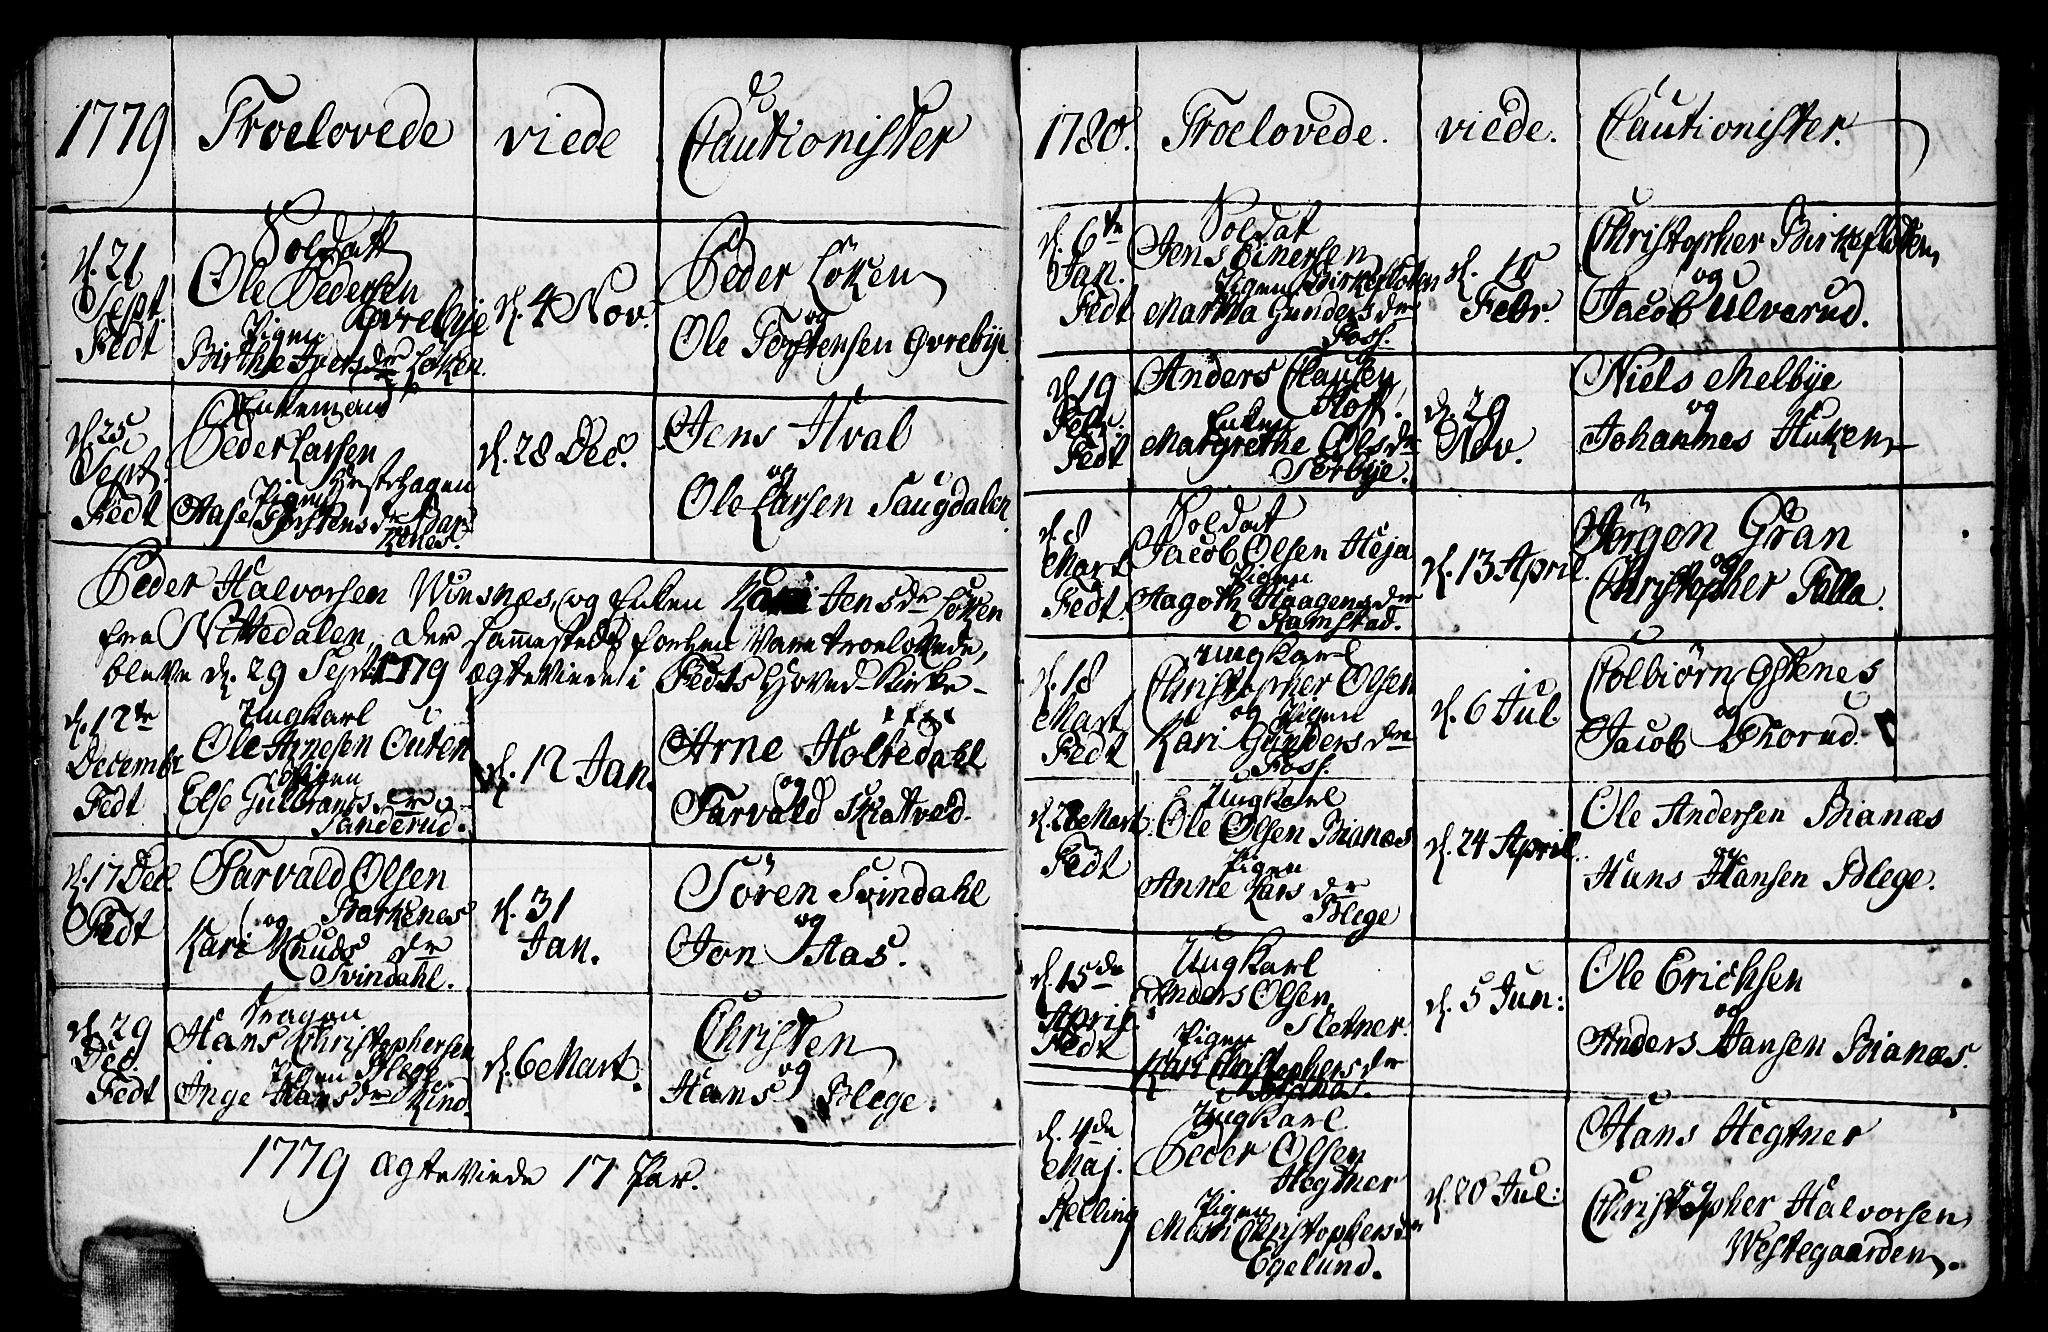 1779 Troelovede viede Cautionister
d. 21 Sept. Fedt
Soldatt
Ole Pedersen
Øvrebye
Pigen
Birthe Iversdr Løken.
d. 4 Nov.
Peder Løken
og
Ole Torstensen Øvrebye
d. 25 Sept. Fedt
Enkemand
Peder Larsen
Hestehagen
Pigen
Aase Torstensdr Bar
kenes.
d. 28 Dec.
Jens Hval
og
Ole Larsen Saugdalen.
Peder Halvorsen Winsnæs, og Enken Kari Jensdr Løken
fra Nittedalen, der sammesteds forhen vare troelovede,
bleve d. 29 Sept. 1779 ægteviede i Fedts Hoved-Kirke-
d. 12te December Fedt
Ungkarl
Ole Arnesen Outen
Pigen
Else Gulbransdr
Sanderud.
d. 12 Jan.
Arne Holtedahl
og
Tarvald Skatved.
d. 17 Dec. Fedt
Tarvald Olsen
Barkenes
og
Kari Knudsdr
Svindahl.
d. 31
Jan.
Sören Svindahl
og
Jon Aas.
d. 29 Dec. Fedt
Dragon
Hans Christophersen
Pigen Blege
Inge Hansdr Kind.
d. 6 Mart.
Christen
og
Hans Blege.
1779 ægteviede 17 Par.
1780. Troelovede. viede. Cautionister.
d. 6te Jan. Fedt
Soldat
Jens Einersen
Pigen Birkefloten
Martha Gundersdr
Foss.
d. 18
Febr.
Christopher Birkefloten
og
Jacob Ulverud.
d. 19 Febr. Fedt
Anders Clausen
Hoff.
Enken
Margrethe Olsdr
Sørbye.
d. 29
Nov.
Niels Melbye
og
Johannes Huken
d. 8 Mart Fedt
Soldat
Jacob Olsen Heja
Pigen
Aagoth Haagensdr
Ramstad.
d. 13 April.
Jörgen Gran
og
Christopher Falla.
d. 18 Mart Fedt
Ungkarl
Christopher Olsen
og Pigen
Kari Gundersdr
Foss.
d. 6 Jul.
Colbiørn Østenes
og
Jacob Thorud.
d. 28 Mart Fedt
Ungkarl
Ole Olsen Bianæs
Pigen
Anne Larsdr
Blege
d. 24 April.
Ole Andersen Bianæs
og
Hans Hansen Blege.
d. 15de April. Fedt
Ungkarl
Anders Olsen
Sletner.
Pigen
Kari Christophersdr
d. 5 Jun:
Ole Erichsen
og
Anders Hansen Bianæs.
d. 4de Maj. Relling
Ungkarl
Peder Olsen
Hegtner
Pigen
Mari Christophersdr
Egelund.
d. 20 Jul:
Hans Hegtner
og
Christopher Halvorsen
Westegaarden.